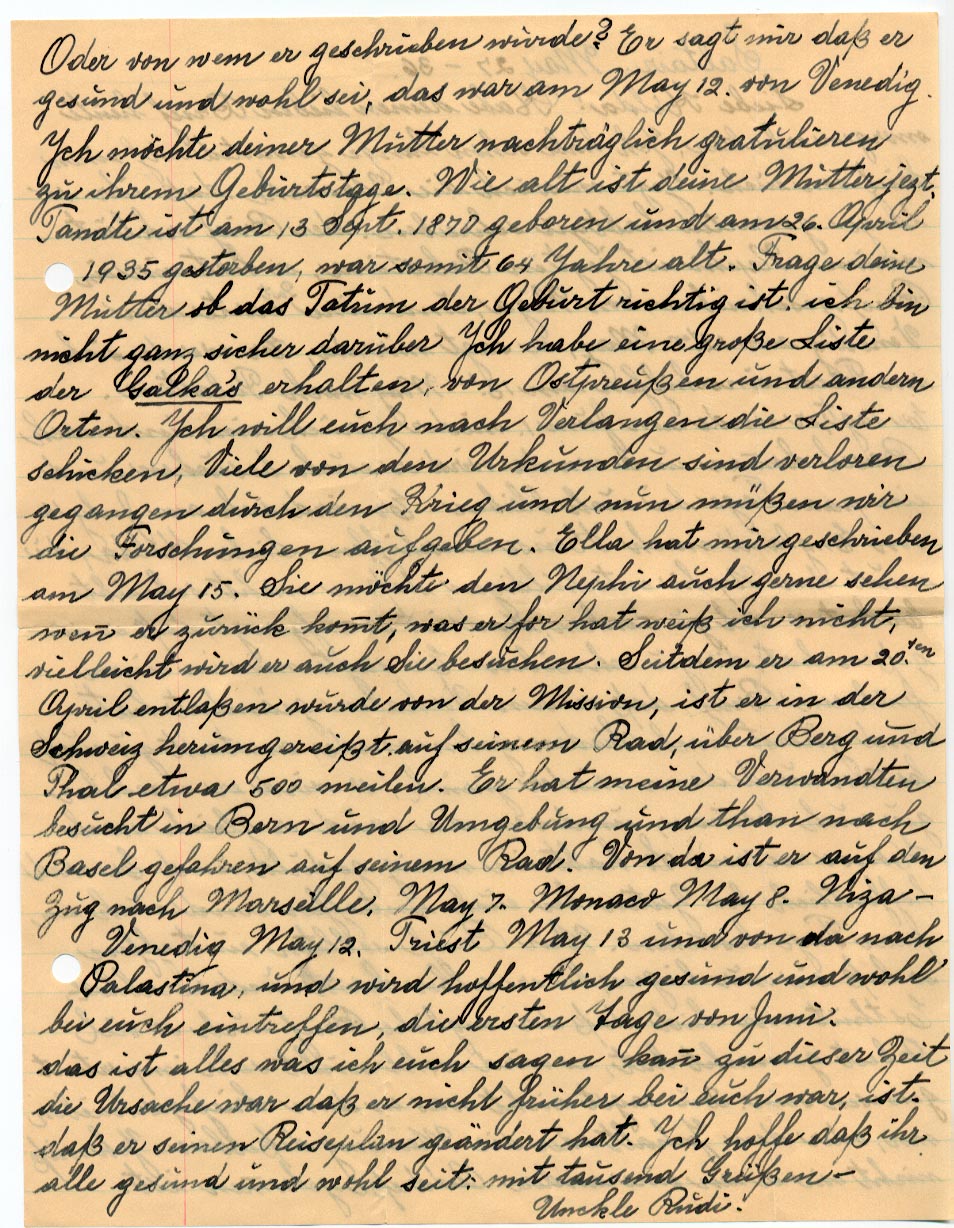 Oder von wem er geschrieben wurde? Er sagt mir daß er
gesund und wohl sei, das war am May 12. von Venedig.
Ich möchte deiner Mutter nachträglich gratulieren
zu ihrem Geburtstage. Wie alt ist deine Mutter jezt.
Tandte ist am 13 Sept. 1870 geboren und am 26. April
1935 gestorben, war somit 64 Jahre alt. Frage deine
Mutter ob das Tatum der Geburt richtig ist. ich bin
nicht ganz sicher darüber Ich habe eine große Liste
der Galka's erhalten, von Ostpreußen und andern
Orten. Ich will euch nach Verlangen die Liste
schicken, Viele von den Urkunden sind verloren
gegangen durch den Krieg und nun müßen wir
die Forschungen aufgeben. Ella hat mir geschrieben
am May 15. Sie möchte den Nephi auch gerne sehen
weñ er zurück kom̄t, was er for hat weiß ich nicht,
vielleicht wird er auch Sie besuchen. Seitdem er am 20.ten
April entlaßen wurde von der Mission, ist er in der
Schweiz herumgereißt auf seinem Rad, über Berg und
Thal etwa 500 meilen. Er hat meine Verwandten
besucht in Bern und Umgebung und than nach
Basel gefahren auf seinem Rad. Von da ist er auf den
Zug nach Marseille. May 7. Monaco May 8. Niza –
Venedig May 12. Triest May 13 und von da nach
Palastina, und wird hoffentlich gesund und wohl
bei euch eintreffen, die ersten Tage von Juni.
das ist alles was ich euch sagen kañ zu dieser Zeit
die Ursache war daß er nicht früher bei euch war, ist.
daß er seinen Reiseplan geändert hat. Ich hoffe daß ihr
alle gesund und wohl seit: mit tausend Grüßen –
Unckle Rudi.